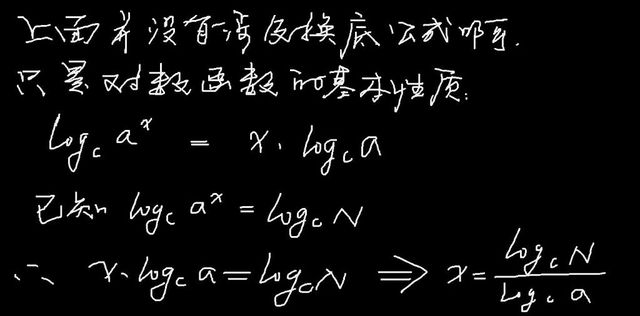 上面并没有涉及换底公式啊.
只是对数函数的基本性质:
log_c a^x = x · log_c a
已知 log_c a^x = log_c N
∴ x · log_c a = log_c N ⟹ x = \frac{log_c N}{log_c a}